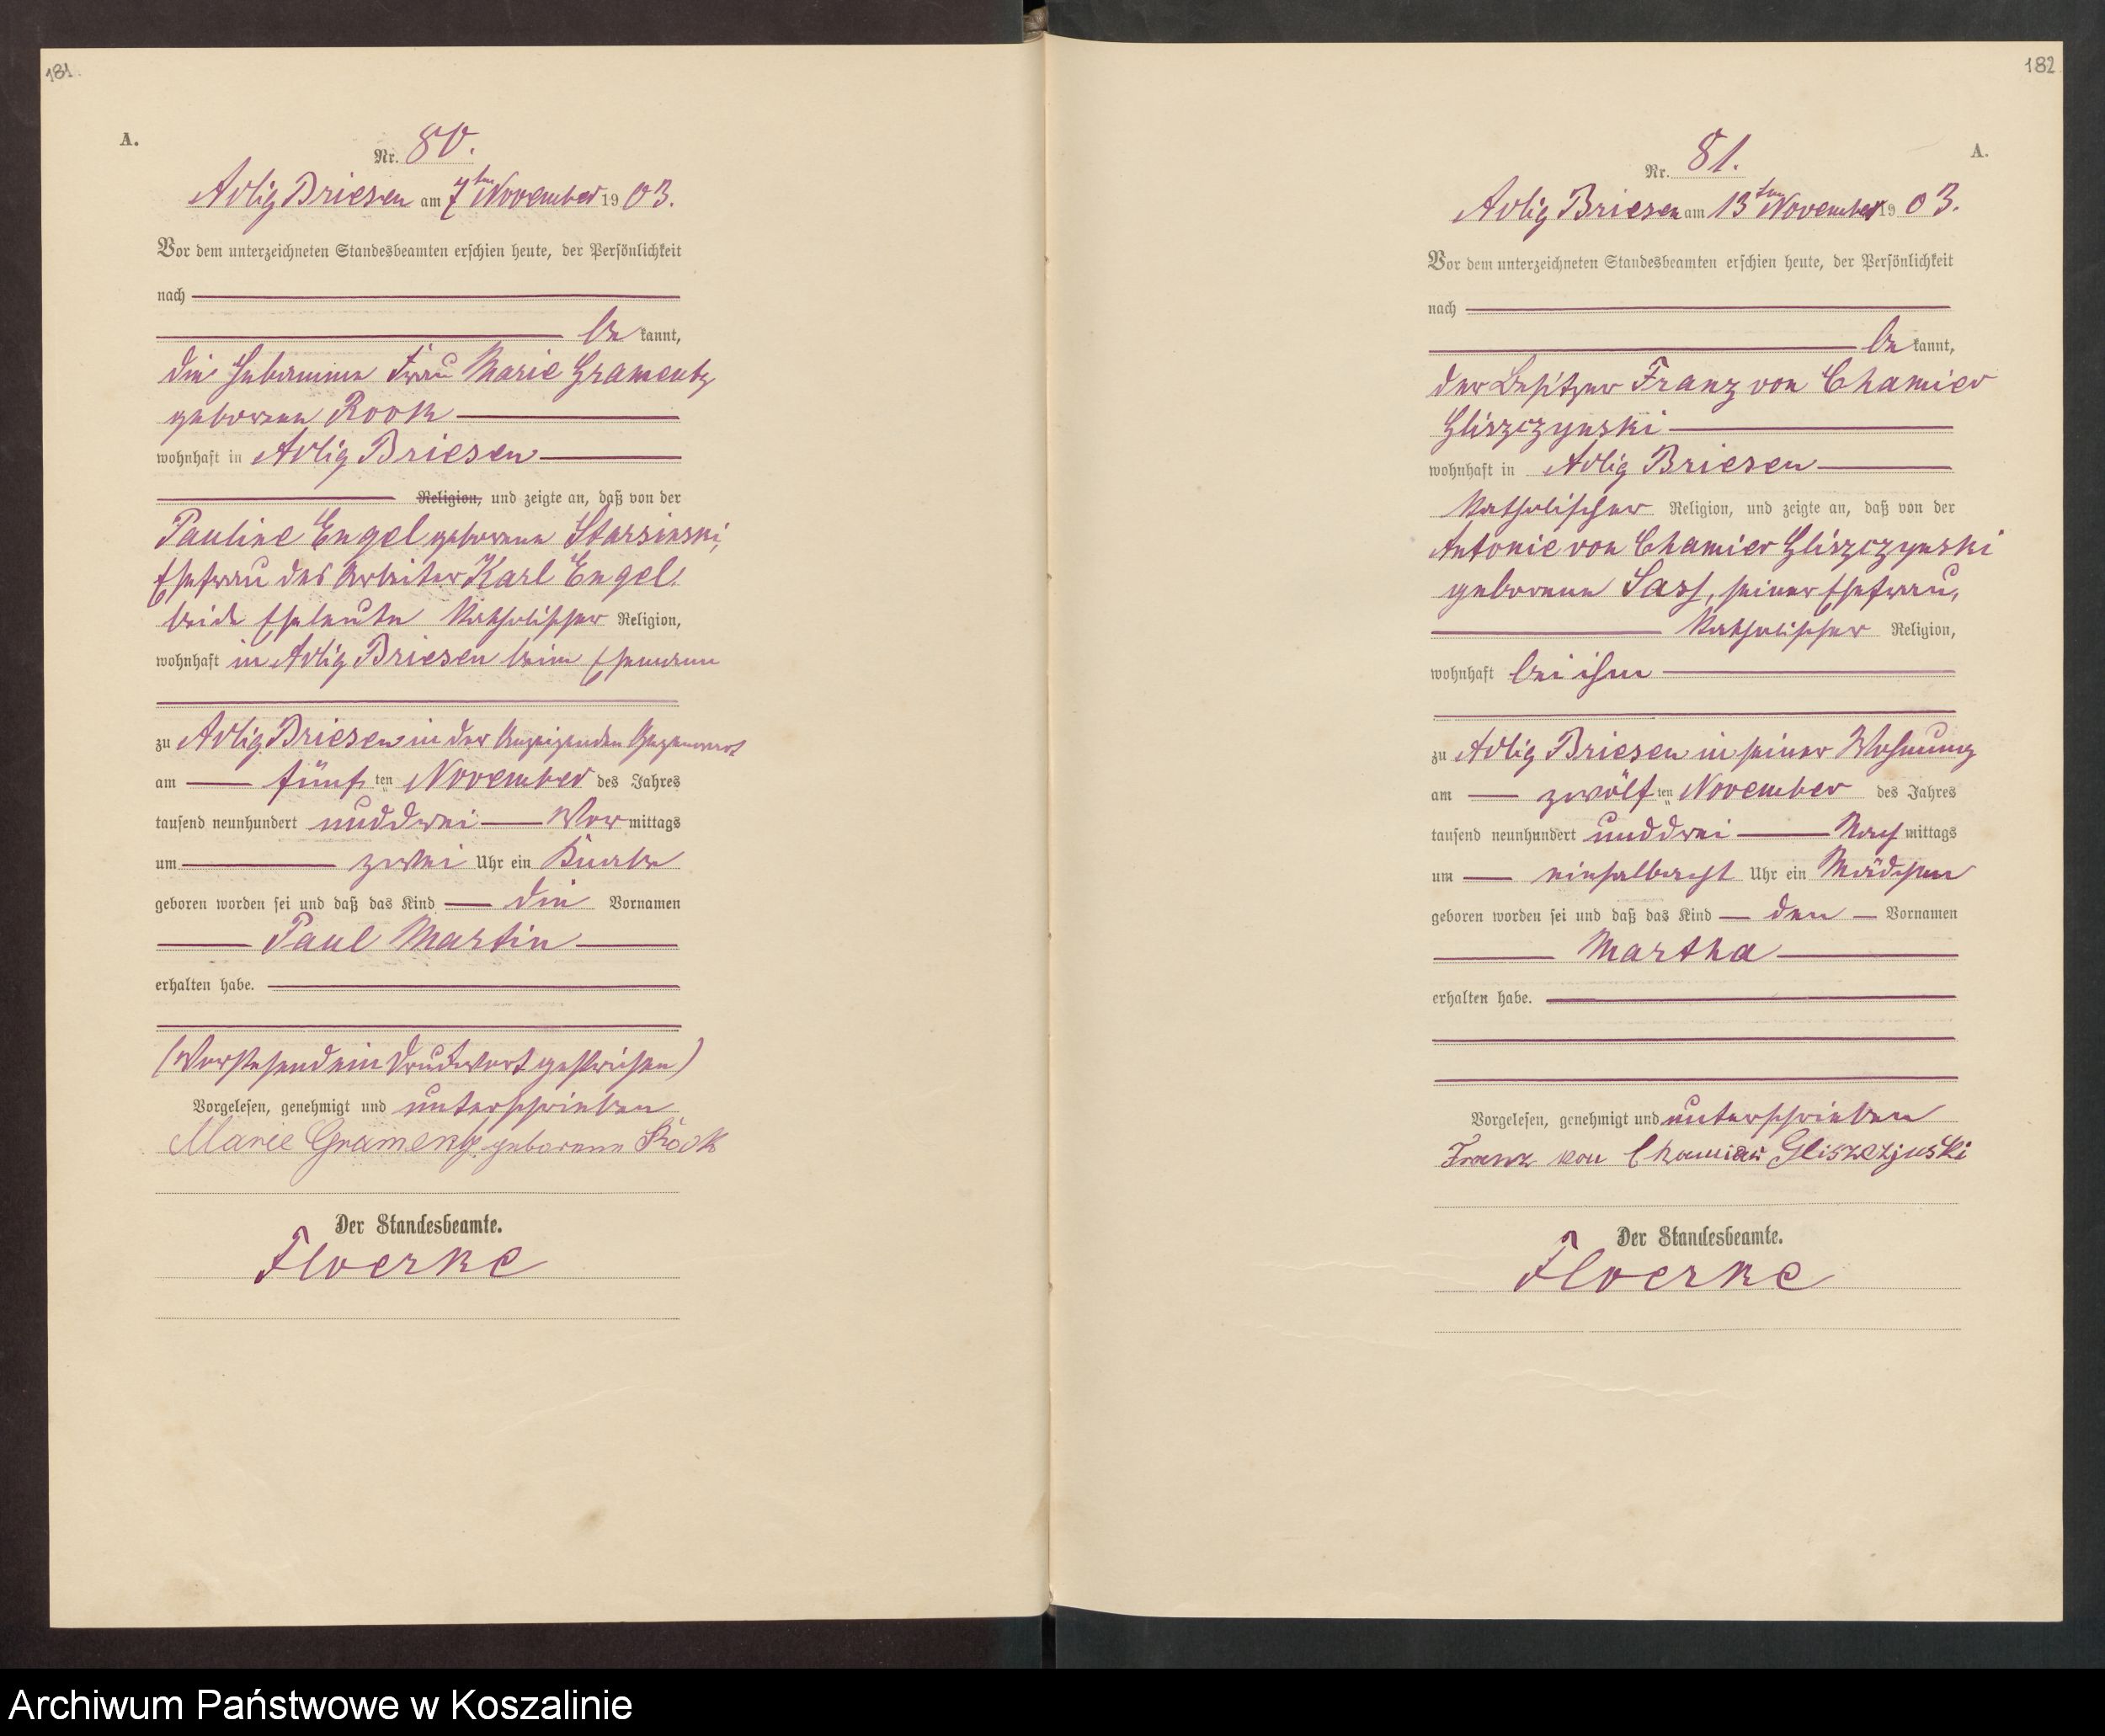 181
A.
Nr. 80.
Adlig Briesen am 7ten November 1903.
Vor dem unterzeichneten Standesbeamten erschien heute, der Persönlichkeit
nach
be kannt,
die Hebamme Frau Marie Gramentz
geborene Rook
wohnhaft in Adlig Briesen
Religion, und zeigte an, daß von der
Pauline Engel geborene Starsinski,
Ehefrau des Arbeiter Karl Engel,
beide Eheleute katholischer Religion,
wohnhaft in Adlig Briesen beim Ehemann
zu Adlig Briesen in der Anzeigenden Gegenwart
am fünften November des Jahres
tausend neunhundert und drei Vormittags
um zwei Uhr ein Knabe
geboren worden sei und daß das Kind die Vornamen
Paul Martin
erhalten habe.
(Vorstehend ein Druckwort gestrichen)
Vorgelesen, genehmigt und unterschrieben
Marie Gramentz geborene Rook
Der Standesbeamte.
Floerke
182
A.
Nr. 81.
Adlig Briesen am 13ten November 1903.
Vor dem unterzeichneten Standesbeamten erschien heute, der Persönlichkeit
nach
be kannt,
der Besitzer Franz von Chamier
Gliszczynski
wohnhaft in Adlig Briesen
katholischer Religion, und zeigte an, daß von der
Antonie von Chamier Gliszczynski
geborene Sass, seiner Ehefrau,
katholischer Religion,
wohnhaft bei ihm
zu Adlig Briesen in seiner Wohnung
am zwölften November des Jahres
tausend neunhundert und drei Nachmittags
um einhalbacht Uhr ein Mädchen
geboren worden sei und daß das Kind den Vornamen
Martha
erhalten habe.
Vorgelesen, genehmigt und unterschrieben
Franz von Chamier Gliszczynski
Der Standesbeamte.
Floerke
Archiwum Państwowe w Koszalinie